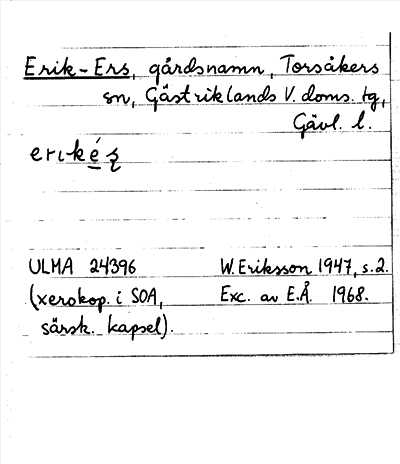 Erik-Ers, gårdsnamn, Torsåkers
sn, Gästriklands V. doms. tg,
Gävl. l.
erıké̠ʂ
ULMA 24396 W. Eriksson 1947, s. 2.
(xerokop. i SOA, Exc. av E.Å. 1968.
särsk. kapsel).